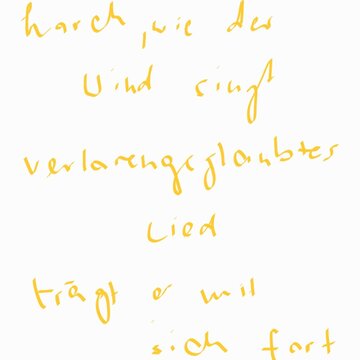 harch, wie der
Wind singt
verlarengeglaubtes
Lied
trägt er mit
sich fort